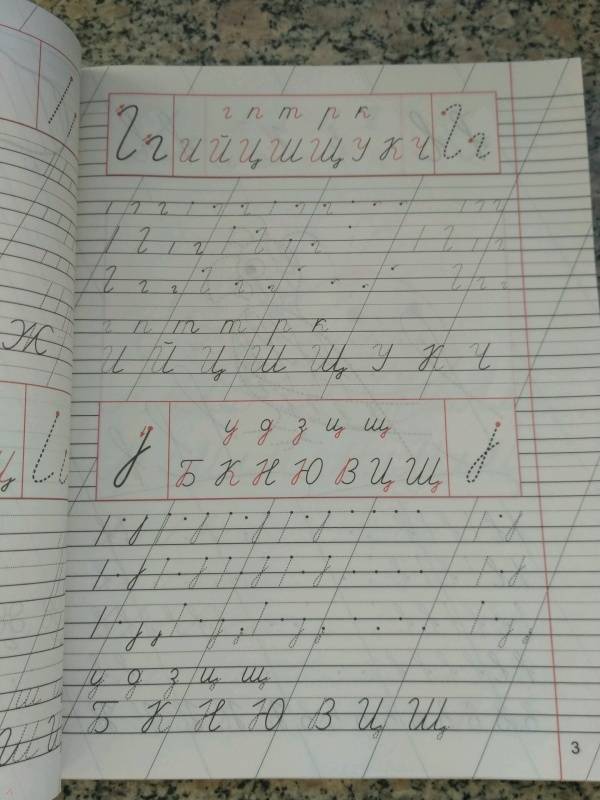 г п т р к
Г г И Й Ц Ш Щ У К Ч Г г
г п т т р к
И Й Ц Ш Щ У К Ч
Ж
у д з ц щ
Б К Н Ю В Ц Щ
у д з ц щ
Б К Н Ю В Ц Щ
3